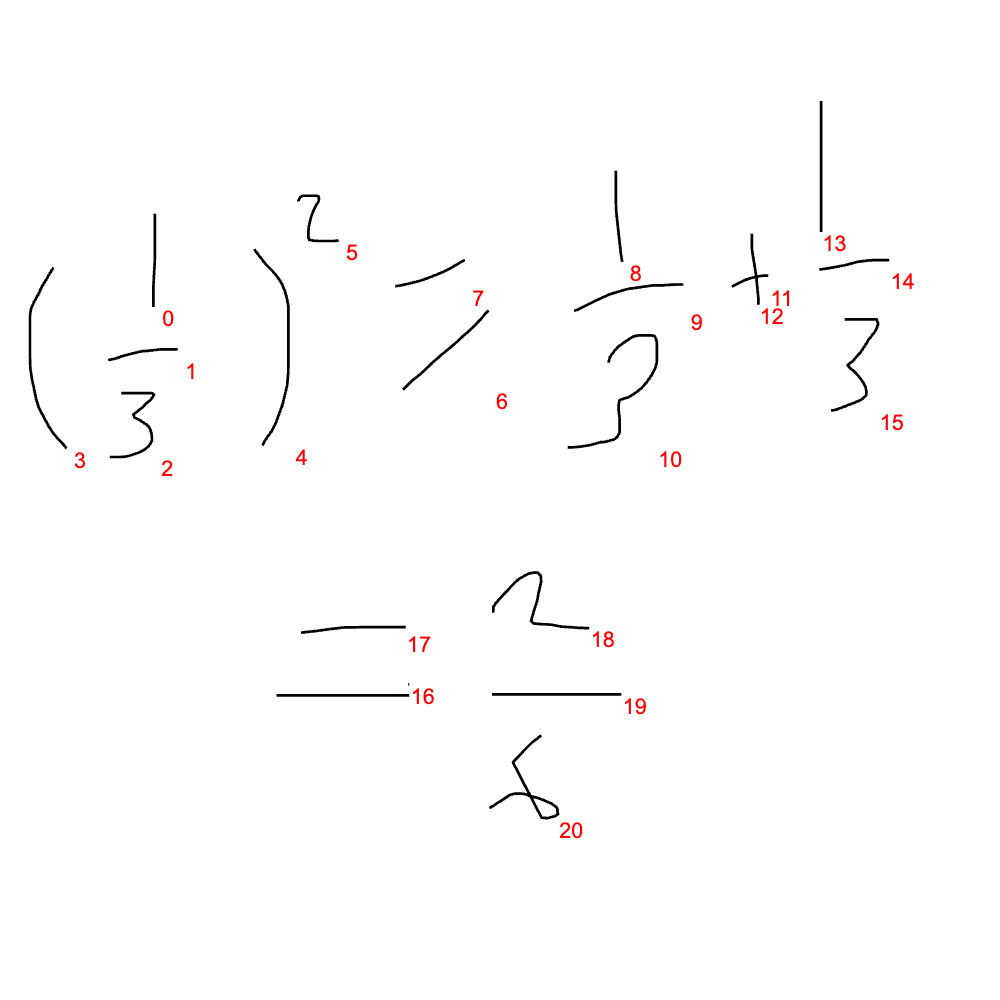 (1/3)² = 1/3 + 1/3
0 1 2 3 4 5 6 7 8 9 10 11 12 13 14 15
= 2/
16 17 18 19 20